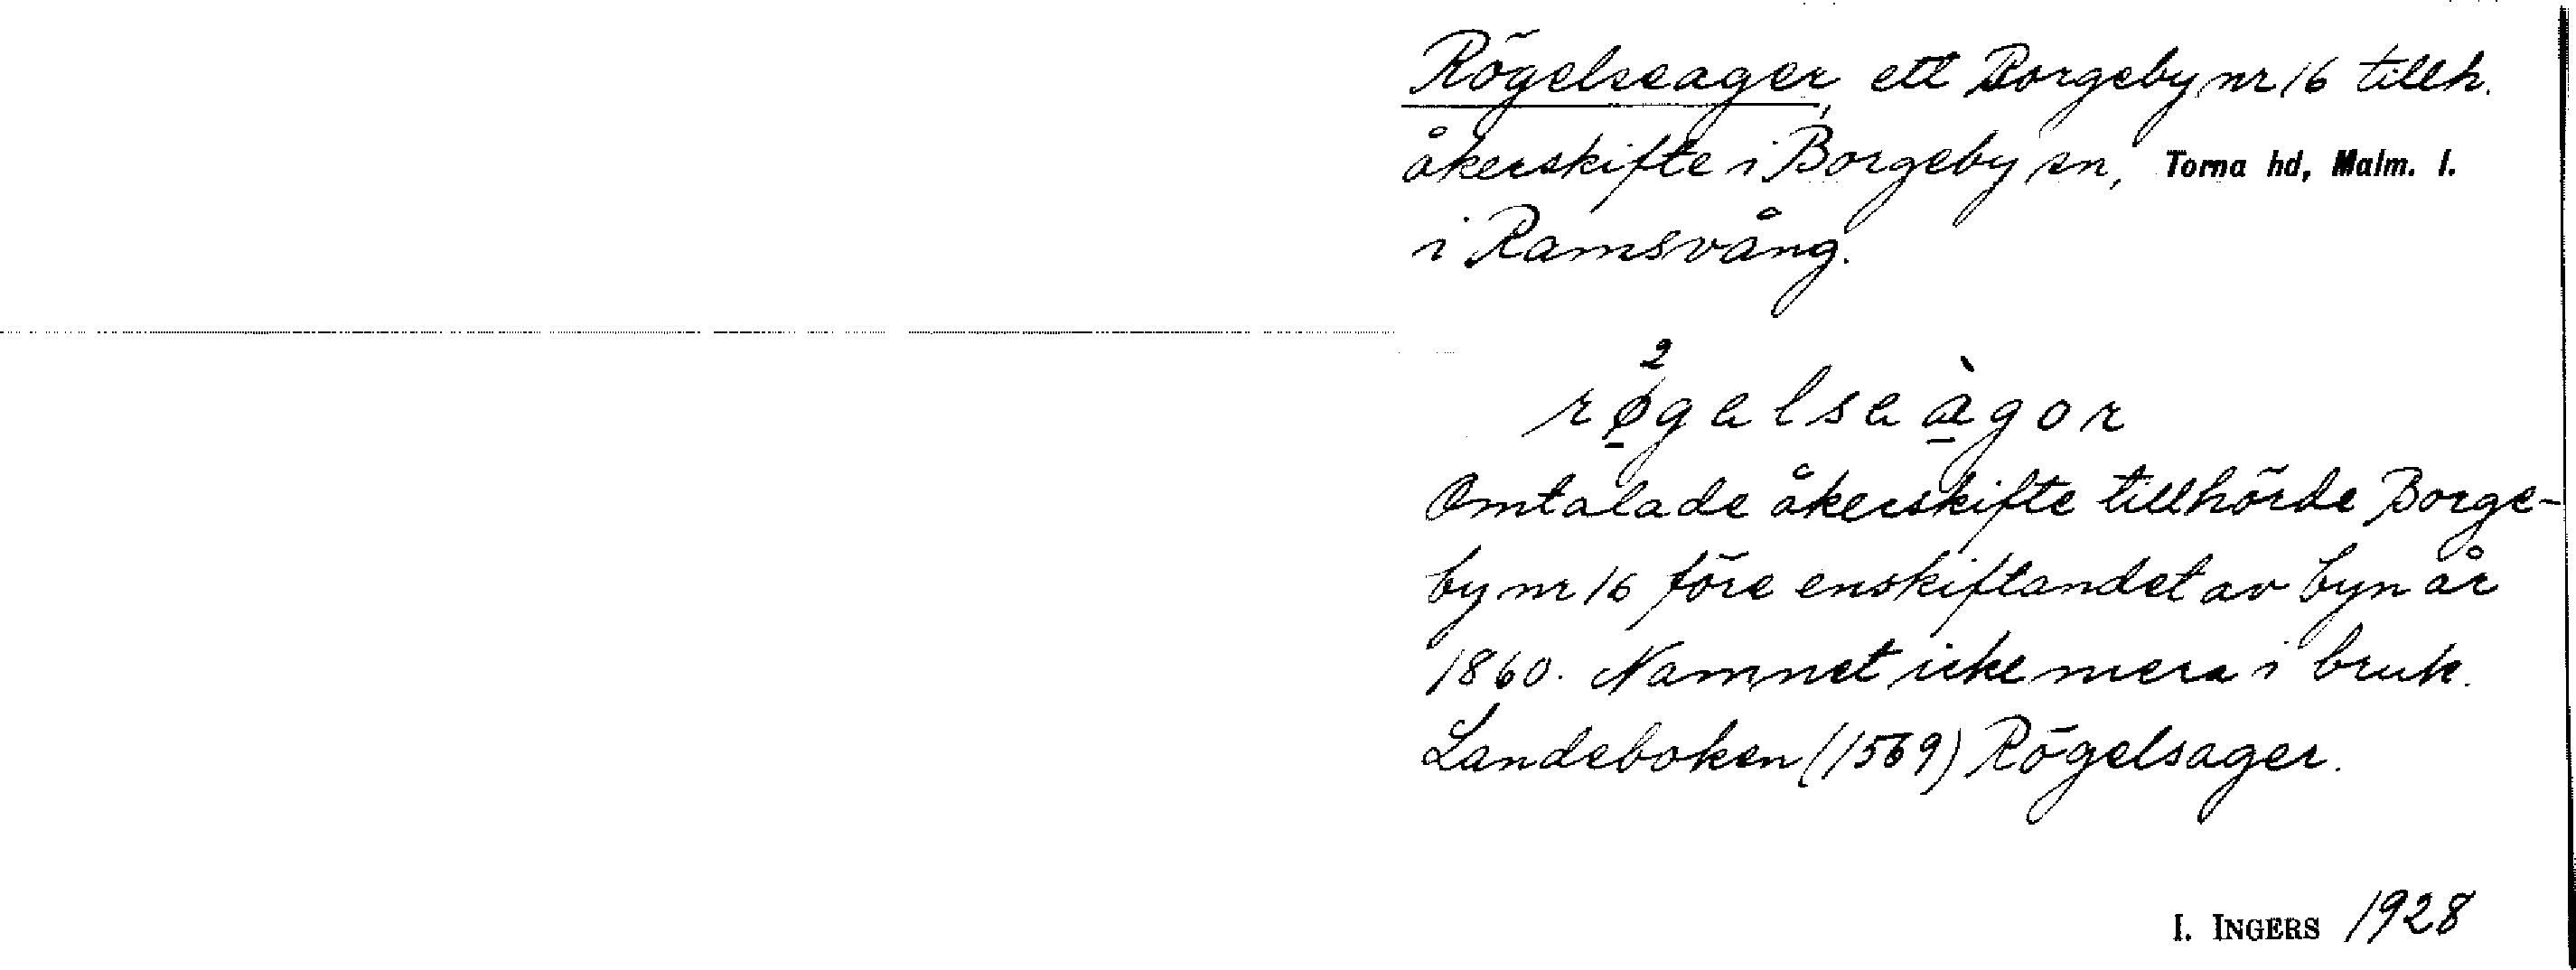 Rögelseager, ett Borgeby nr 16 tillh.
åkerskifte i Borgeby sn, Torna hd, Malm. l.
i Ramsvång.
2
rø̱gelseà̱gor
Omtalade åkerskifte tillhörde Borge-
by nr 16 före enskiftandet av byn år
1860. Namnet icke mera i bruk.
Landeboken (1569) Rögelsager.
I. INGERS 1928